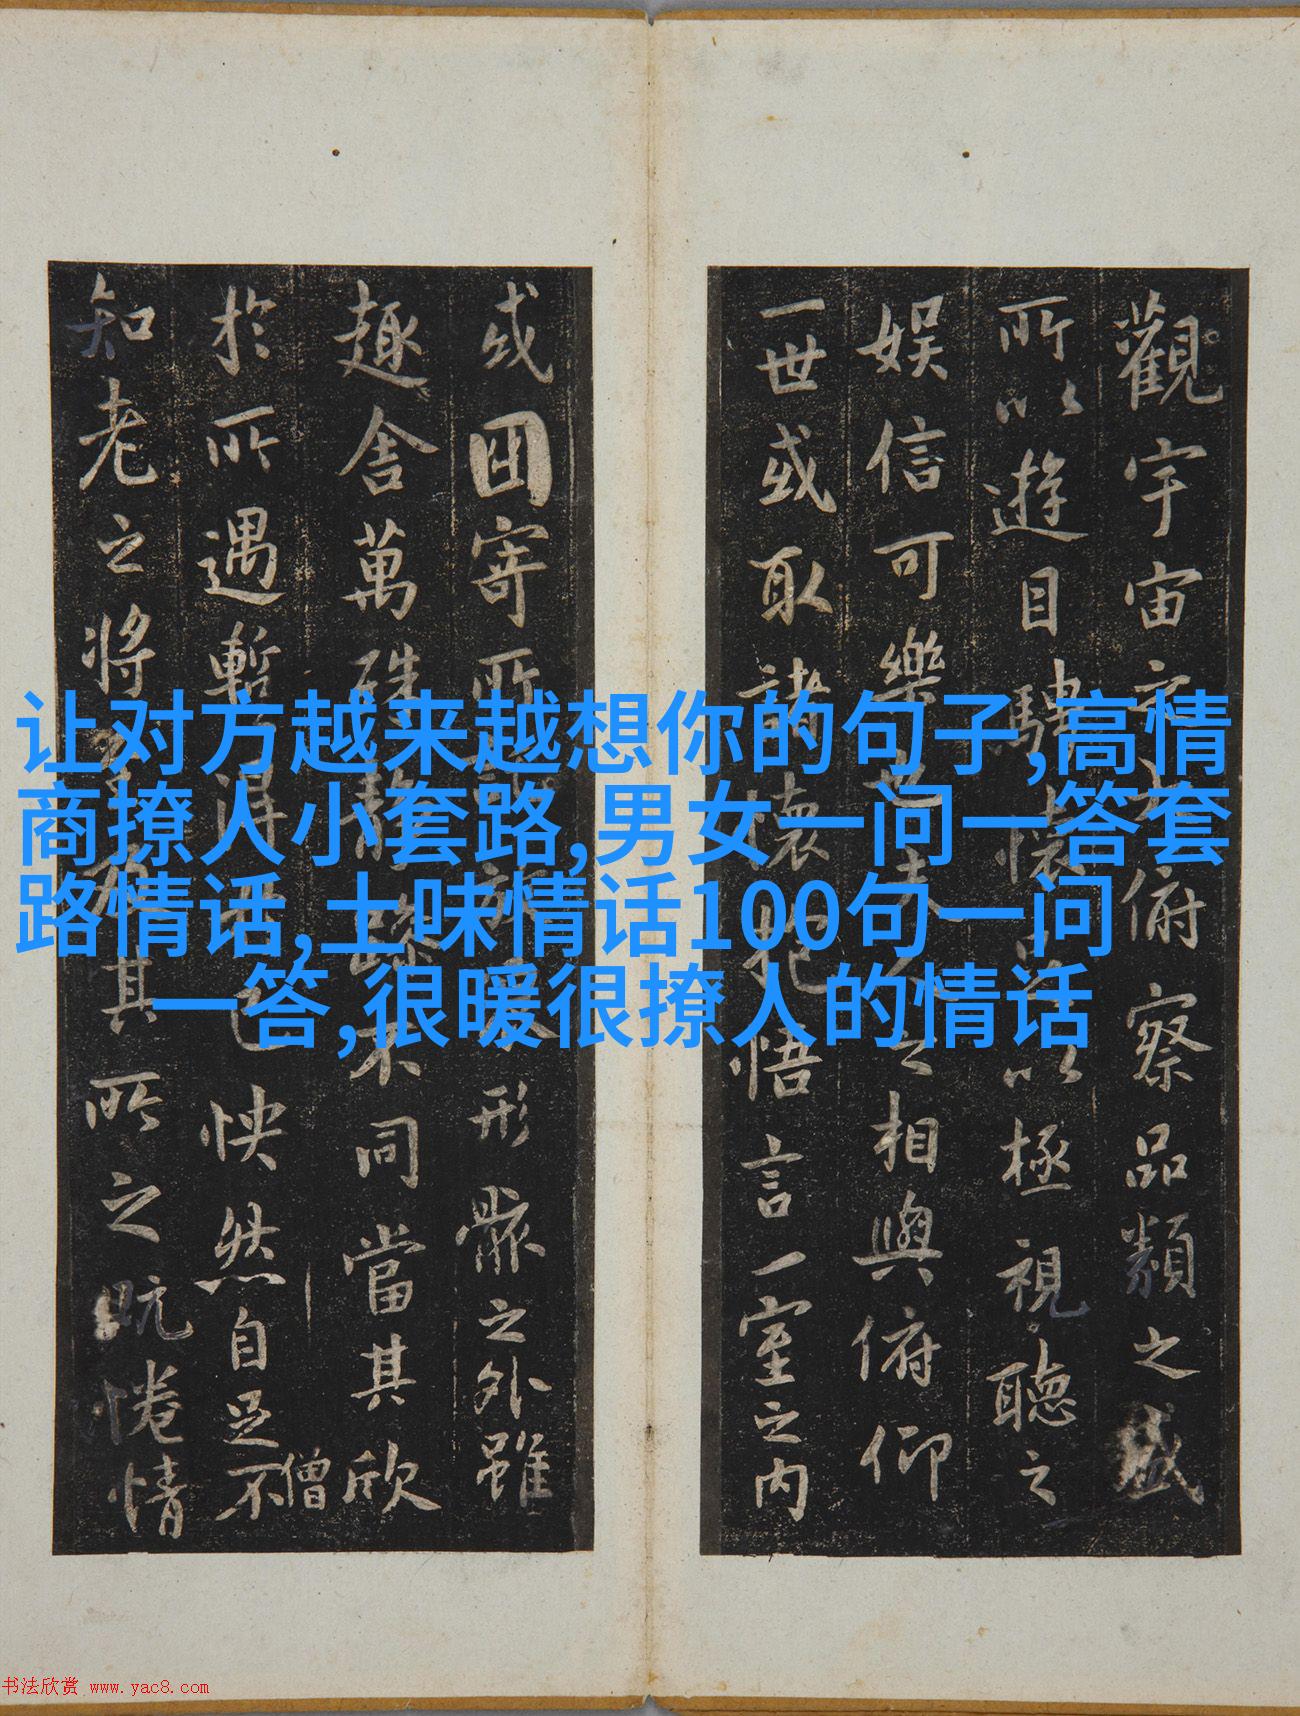 觀宇宙之大俯察品類之盛
所以遊目騁懷足以極視聽之
娱信可樂也夫人之相與俯仰
一世或取諸懷抱悟言一室之内
或因寄所託放浪形骸之外雖
趣舍萬殊静躁不同當其欣
僧
於所遇暫得於己怏然自足不
知老之將至及其所之既惓情
让对方越来越想你的句子,高情
商撩人小套路,男女一问一答套
路情话,土味情话100句一问
一答,很暖很撩人的情话
书法欣赏 www.yac8.com